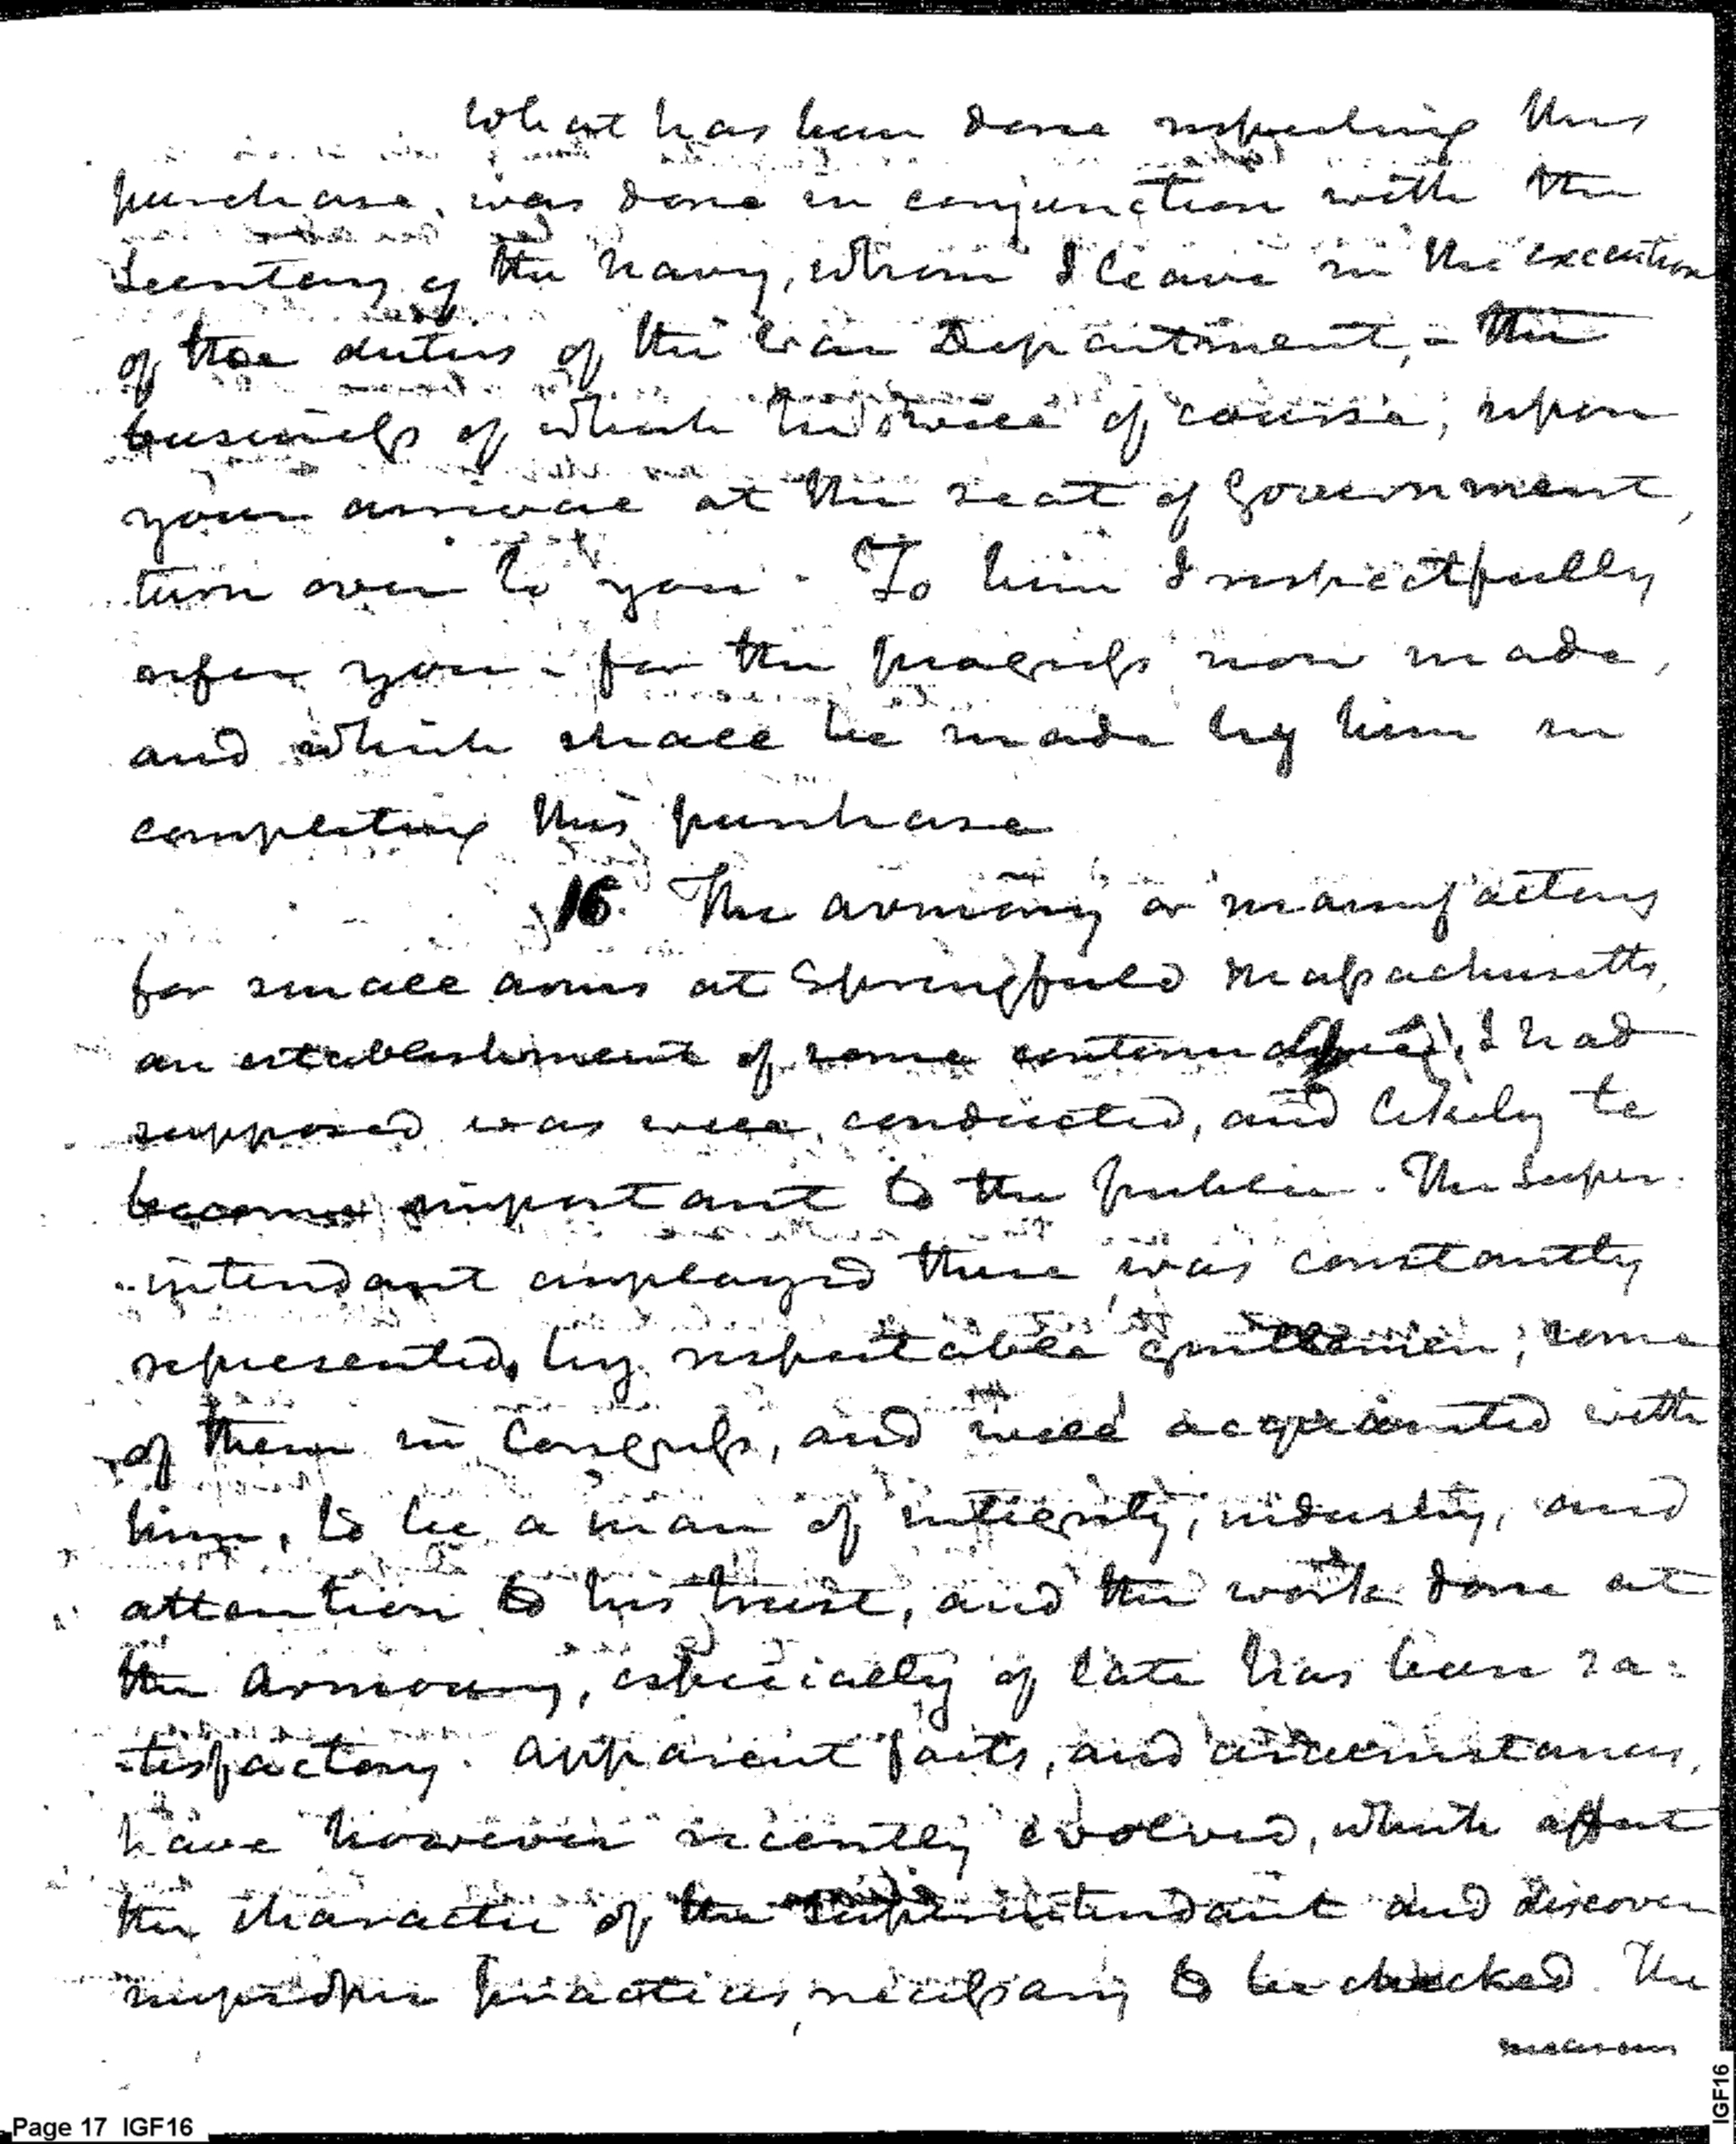 What has been done respecting this
purchase, was done in conjunction with the
Secretary of the Navy, whom I leave in the execution
of the duties of the War Department, - the
business of which he will of course, upon
your arrival at the seat of Government,
turn over to you. To him I respectfully
refer you - for the progress now made,
and which shall be made by him in
completing this purchase
16. The armory or manufactory
for small arms at Springfield Massachusetts,
an establishment of some continuance, I had
supposed was well conducted, and likely to
become important to the public. The Super-
-intendant employed there was constantly
represented, by respectable gentlemen, some
of them in Congress, and well acquainted with
him, to be a man of integrity, industry, and
attention to his trust, and the work done at
the armoury, especially of late has been sa=
-tisfactory. Apparent facts, and circumstances,
have however recently evolved, which affect
the character of the superintendant and discover
improper practices, necessary to be checked. The
measures
Page 17 IGF16
IGF16